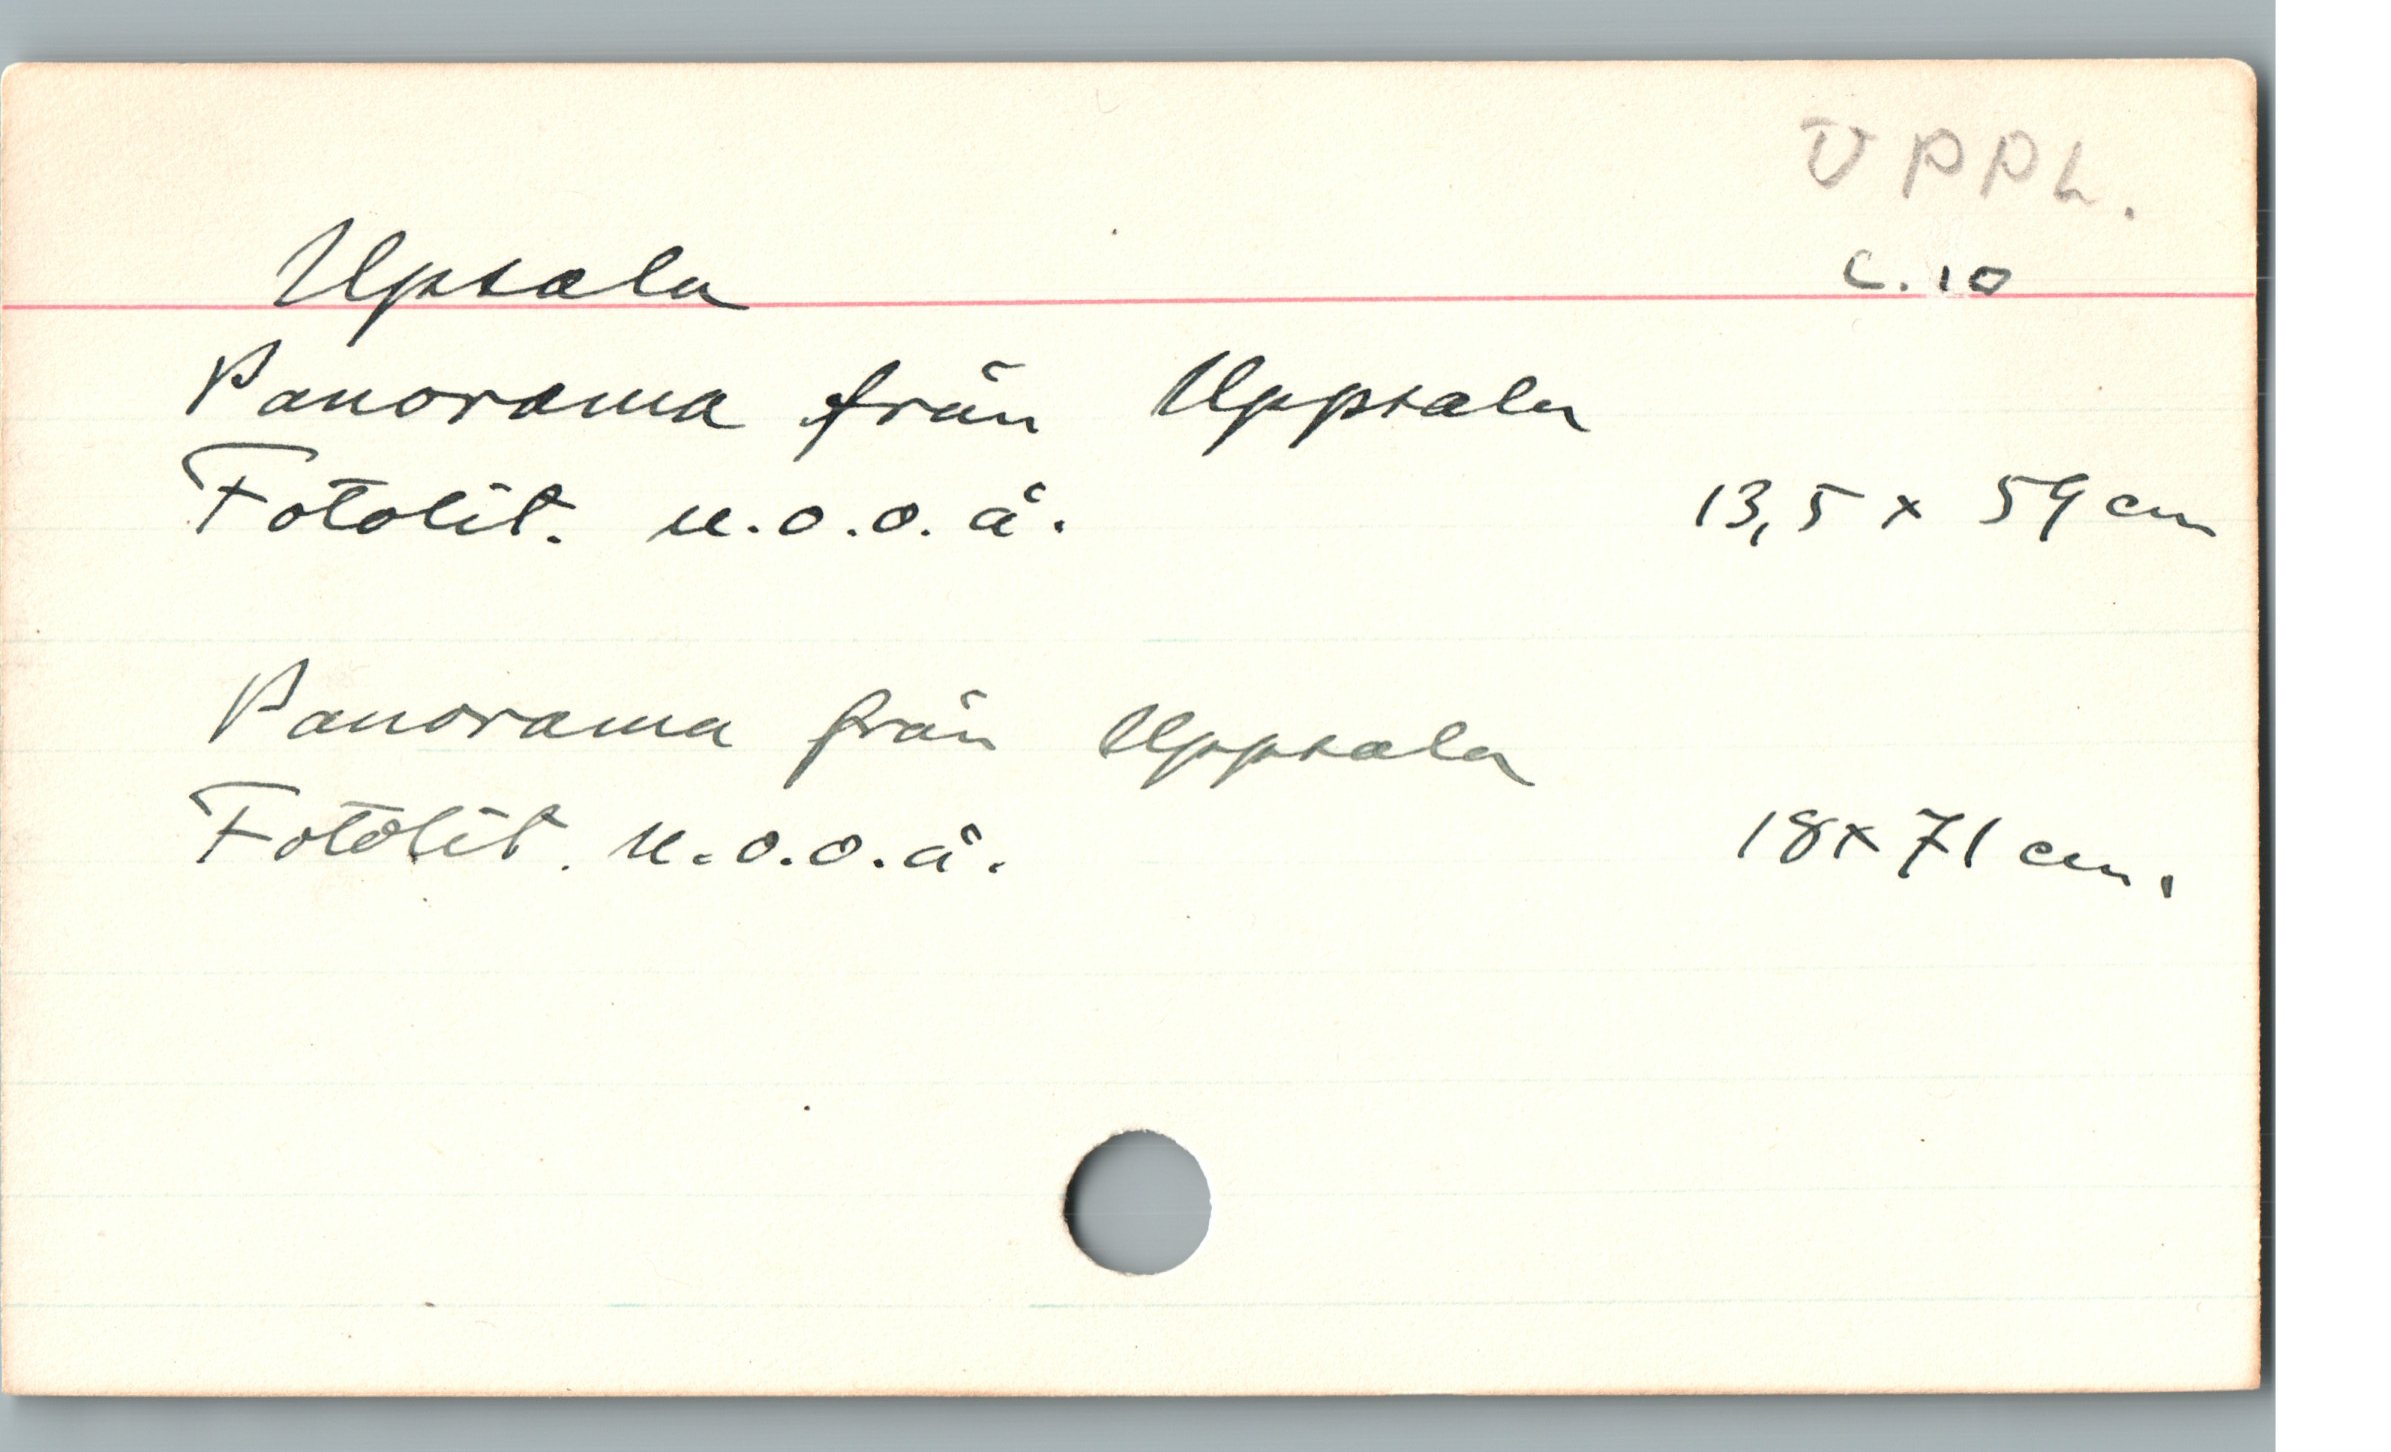 UPPL.
C. 10
Upsala
Panorama från Uppsala
Fotolit. u.o.o.å. 13,5 x 59 cm
Panorama från Uppsala
Fotolit. u.o.o.å. 18x71 cm.